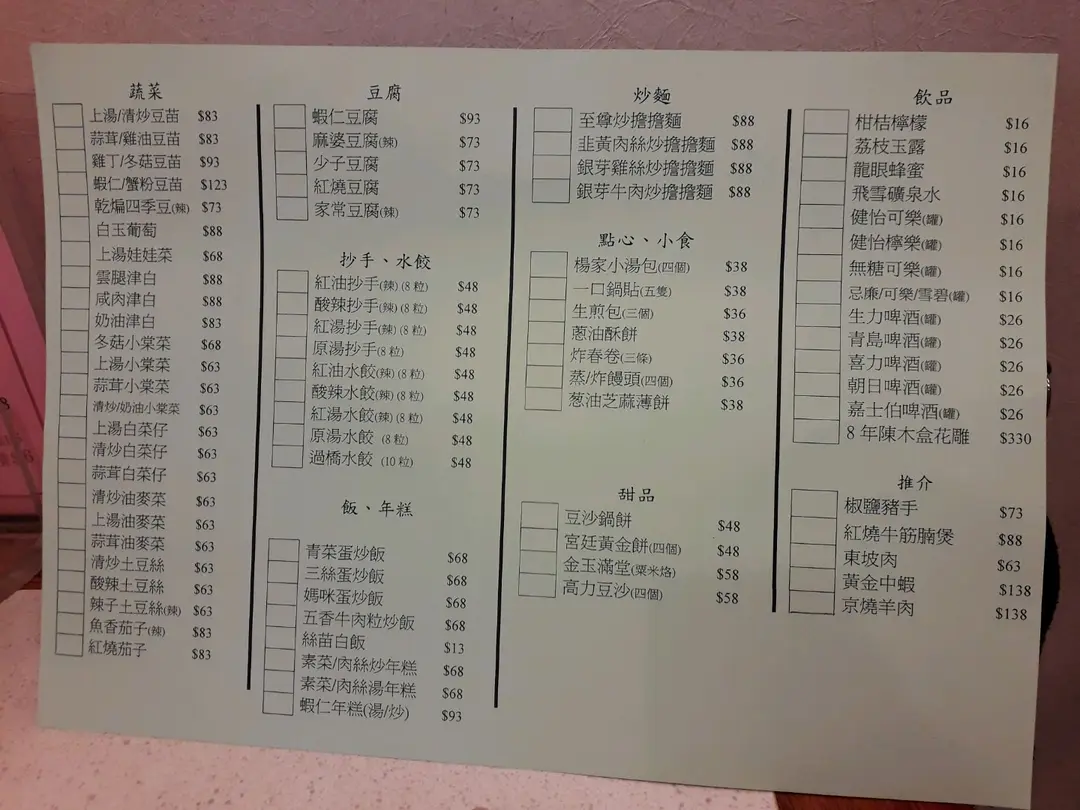 蔬菜
上湯/清炒豆苗 $83
蒜茸/雞油豆苗 $83
雞丁/冬菇豆苗 $93
蝦仁/蟹粉豆苗 $123
乾煸四季豆(辣) $73
白玉葡萄 $88
上湯娃娃菜 $68
雲腿津白 $88
咸肉津白 $88
奶油津白 $83
冬菇小棠菜 $68
上湯小棠菜 $63
蒜茸小棠菜 $63
清炒/奶油小棠菜 $63
上湯白菜仔 $63
清炒白菜仔 $63
蒜茸白菜仔 $63
清炒油麥菜 $63
上湯油麥菜 $63
蒜茸油麥菜 $63
清炒土豆絲 $63
酸辣土豆絲 $63
辣子土豆絲(辣) $63
魚香茄子(辣) $83
紅燒茄子 $83
豆腐
蝦仁豆腐 $93
麻婆豆腐(辣) $73
少子豆腐 $73
紅燒豆腐 $73
家常豆腐(辣) $73
抄手、水餃
紅油抄手(辣) (8 粒) $48
酸辣抄手(辣) (8 粒) $48
紅湯抄手(辣) (8 粒) $48
原湯抄手(8 粒) $48
紅油水餃(辣) (8 粒) $48
酸辣水餃(辣) (8 粒) $48
紅湯水餃(辣) (8 粒) $48
原湯水餃 (8 粒) $48
過橋水餃 (10 粒) $48
飯、年糕
青菜蛋炒飯 $68
三絲蛋炒飯 $68
媽咪蛋炒飯 $68
五香牛肉粒炒飯 $68
絲苗白飯 $13
素菜/肉絲炒年糕 $68
素菜/肉絲湯年糕 $68
蝦仁年糕(湯/炒) $93
炒麵
至尊炒擔擔麵 $88
韭黃肉絲炒擔擔麵 $88
銀芽雞絲炒擔擔麵 $88
銀芽牛肉炒擔擔麵 $88
點心、小食
楊家小湯包(四個) $38
一口鍋貼(五隻) $38
生煎包(三個) $36
蔥油酥餅 $38
炸春卷(三條) $36
蒸/炸饅頭(四個) $36
葱油芝麻薄餅 $38
甜品
豆沙鍋餅 $48
宮廷黃金餅(四個) $48
金玉滿堂(粟米烙) $58
高力豆沙(四個) $58
飲品
柑桔檸檬 $16
荔枝玉露 $16
龍眼蜂蜜 $16
飛雪礦泉水 $16
健怡可樂(罐) $16
健怡檸樂(罐) $16
無糖可樂(罐) $16
忌廉/可樂/雪碧(罐) $16
生力啤酒(罐) $26
青島啤酒(罐) $26
喜力啤酒(罐) $26
朝日啤酒(罐) $26
嘉士伯啤酒(罐) $26
8 年陳木盒花雕 $330
推介
椒鹽豬手 $73
紅燒牛筋腩煲 $88
東坡肉 $63
黃金中蝦 $138
京燒羊肉 $138